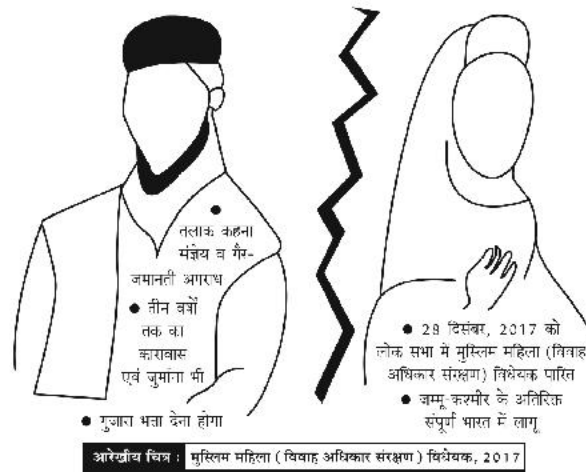 ● तलाक कहना
संज्ञेय व गैर-
जमानती अपराध
● तीन वर्षों
तक का
कारावास
एवं जुर्माना भी
● गुजारा भत्ता देना होगा
● 28 दिसंबर, 2017 को
लोक सभा में मुस्लिम महिला (विवाह
अधिकार संरक्षण) विधेयक पारित
● जम्मू-कश्मीर के अतिरिक्त
संपूर्ण भारत में लागू
आरेखीय चित्र : मुस्लिम महिला ( विवाह अधिकार संरक्षण ) विधेयक, 2017